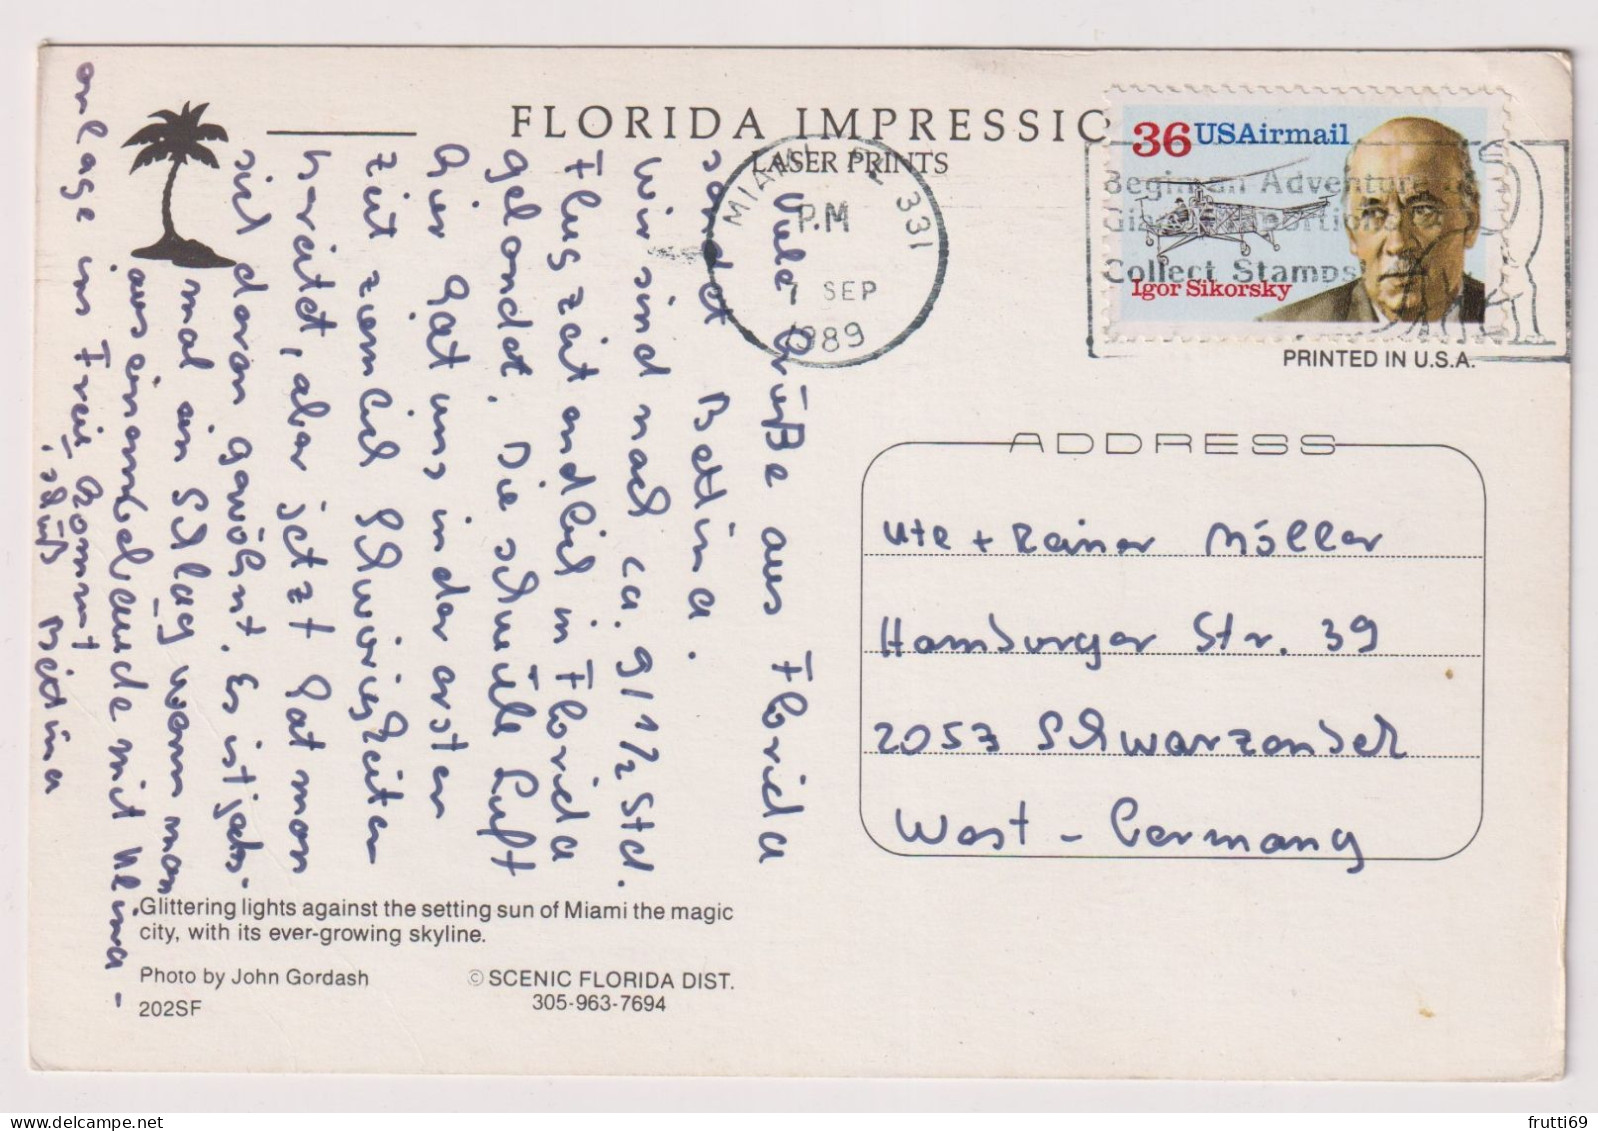 FLORIDA IMPRESSIO
LASER PRINTS
MIAMI FL 331
P.M
7 SEP
1989
36 USAirmail
Igor Sikorsky
Begin an Adventure in
Collect Stamps
PRINTED IN U.S.A.
Viele Grüße aus Florida
sendet Bettina.
Wir sind nach ca. 9 1/2 Std.
Flugzeit endlich in Florida
gelandet. Die schwüle Luft
hier hat uns in der ersten
Zeit ziemlich Schwierigkeiten
bereitet, aber jetzt hat man
sich daran gewöhnt. Es ist jedes-
mal ein Schlag wenn man
aus einem Gebäude mit Klima-
anlage ins Freie kommt.
Tschüß Bettina
ADDRESS
Ute + Rainer Möller
Hamburger Str. 39
2053 Schwarzenbek
West - Germany
Glittering lights against the setting sun of Miami the magic
city, with its ever-growing skyline.
Photo by John Gordash
© SCENIC FLORIDA DIST.
305-963-7694
202SF
frutti69